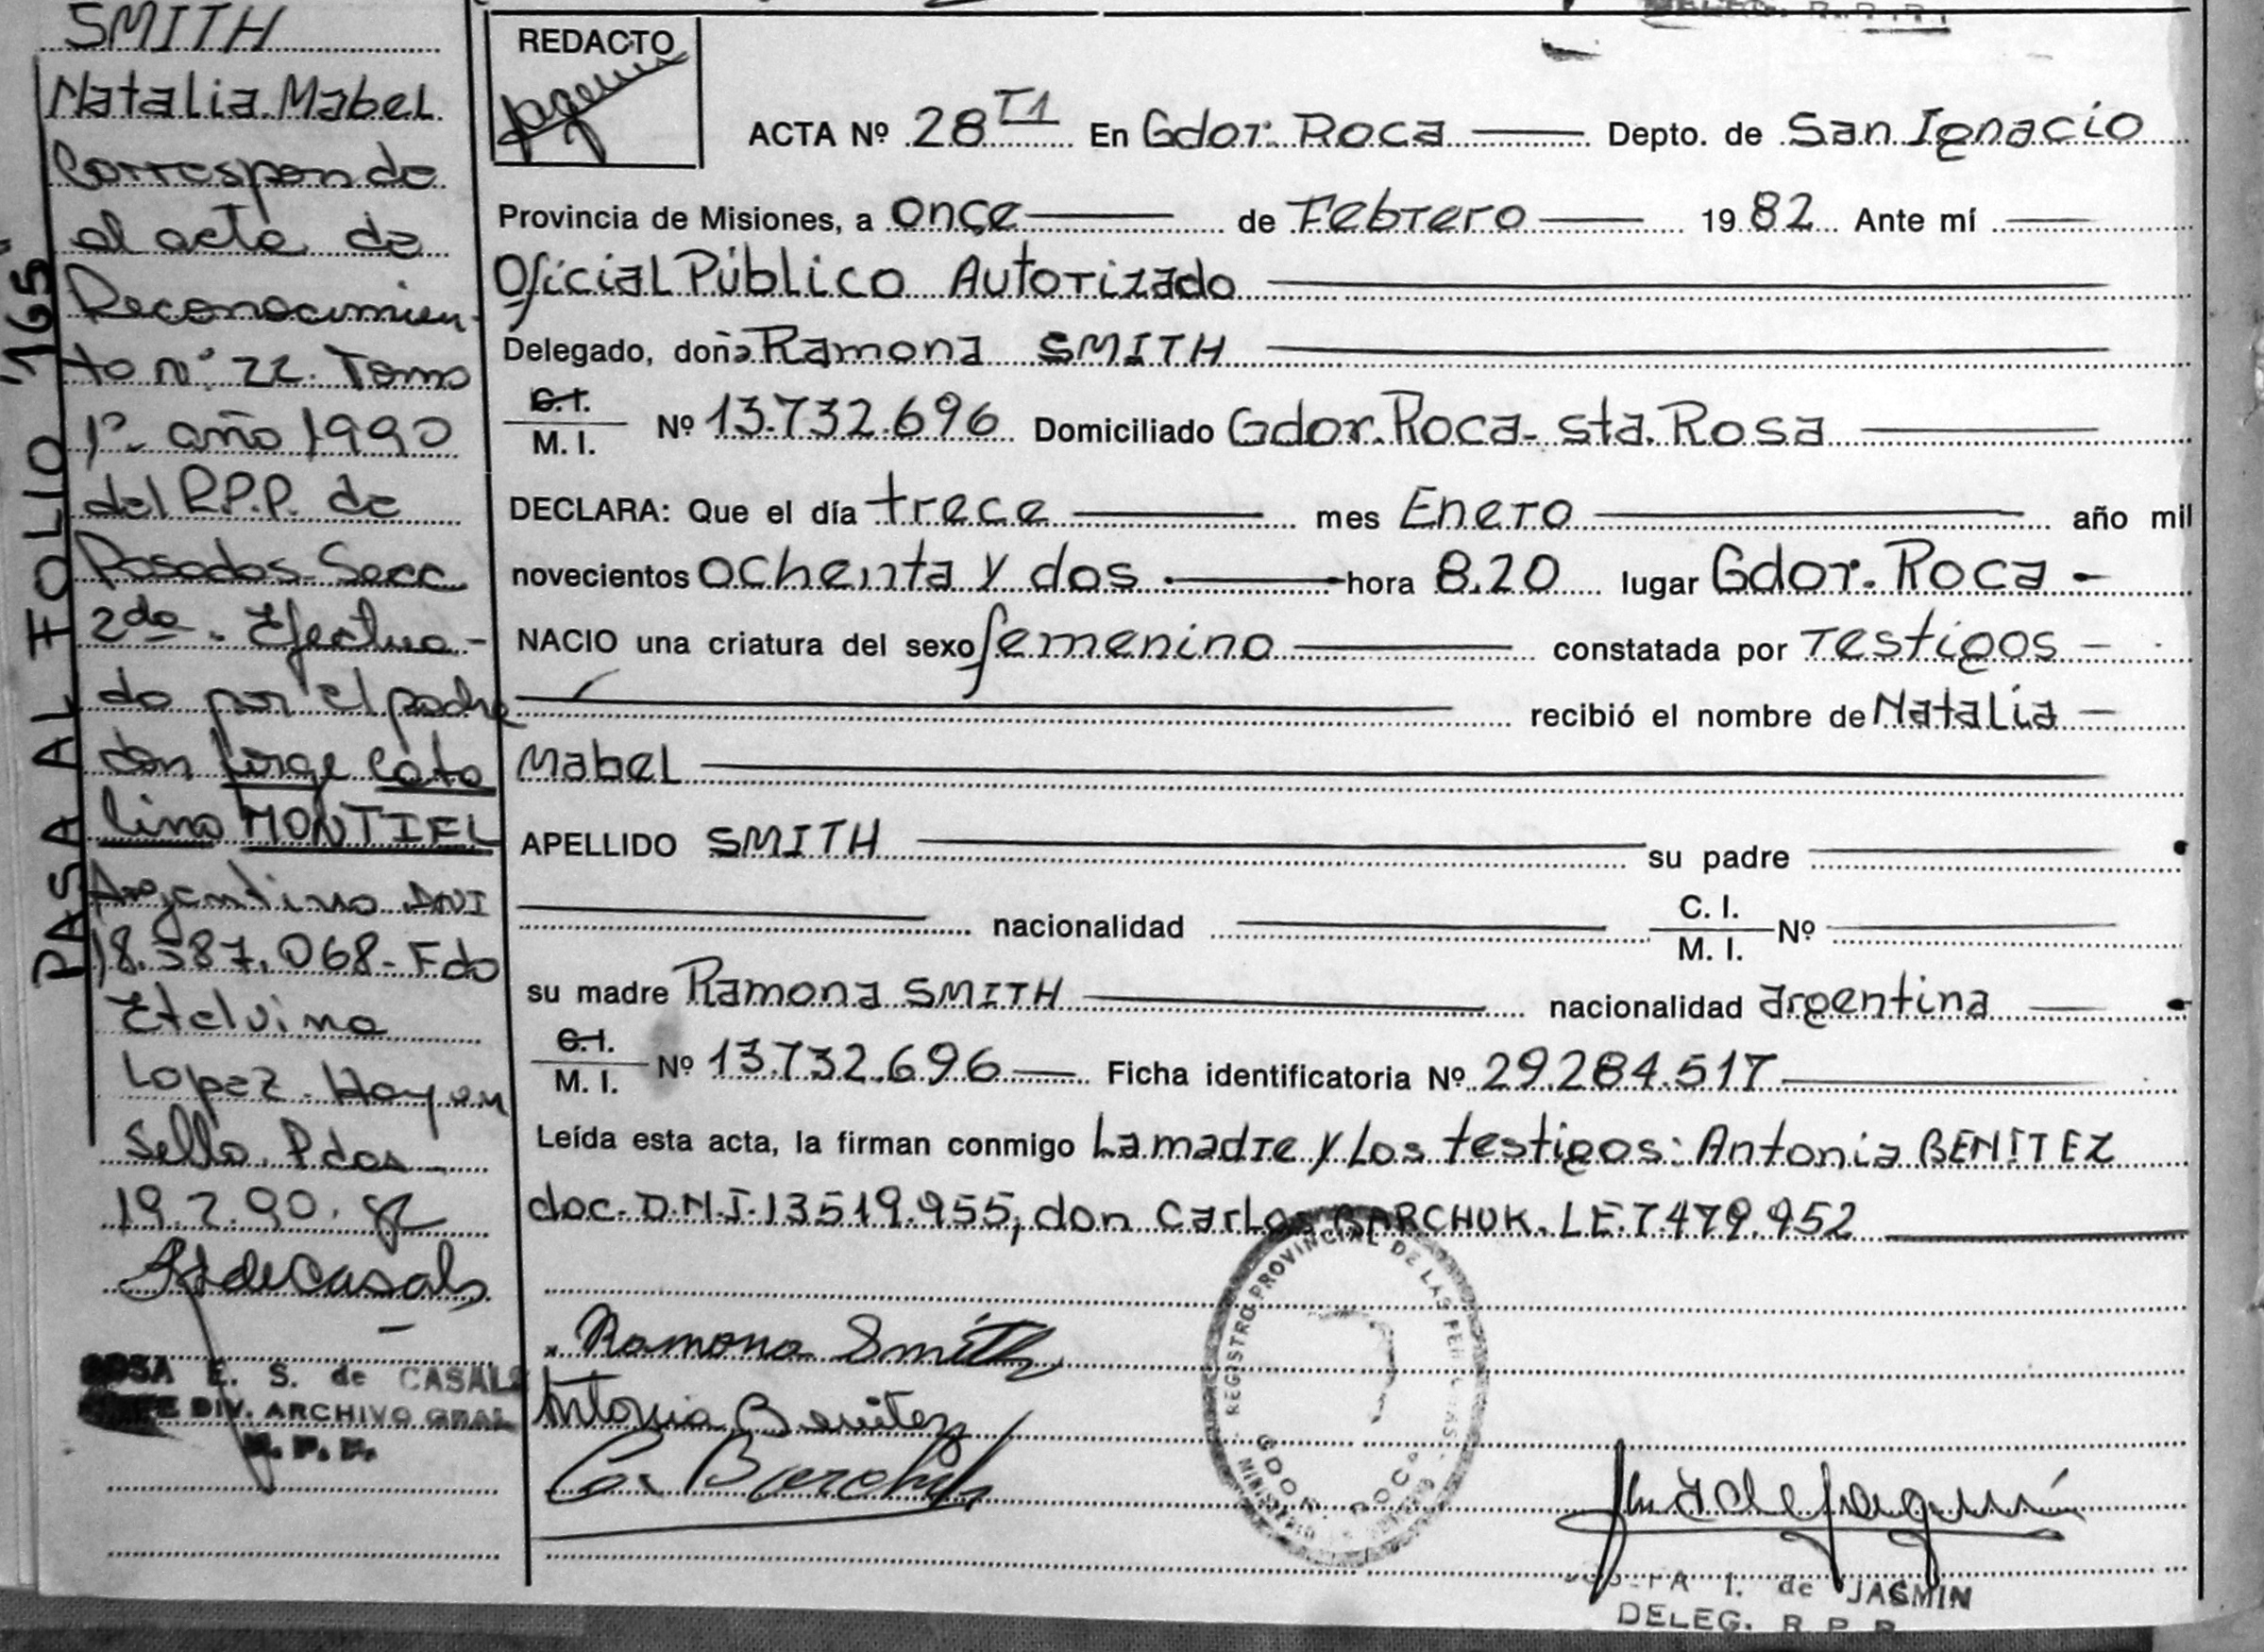 SMITH
Natalia Mabel
Corresponde
al acta de
Reconocimien-
to n° 22. Tomo
1°- año 1990
del R.P.P. de
Posadas-Secc
2da. Efectua-
do por el padre
don Jorge Cata
lino MONTIEL
Argentino DNI
18.587.068- Fdo
Etelvina
Lopez. Hay un
Sello. Pdas
19.7.90.
PASA AL FOLIO "165"
E. S. de CASALS
DIV. ARCHIVO GRAL
REDACTO
ACTA Nº 28 T1 En Gdor. Roca Depto. de San Ignacio
Provincia de Misiones, a once de Febrero 1982 Ante mí
Oficial Público Autorizado
Delegado, doña Ramona SMITH
C.I.
M. I. Nº 13.732.696 Domiciliado Gdor. Roca- sta. Rosa
DECLARA: Que el día trece mes Enero año mil
novecientos ochenta y dos hora 8.20 lugar Gdor. Roca -
NACIO una criatura del sexo femenino constatada por Testigos -
recibió el nombre de Natalia -
Mabel
APELLIDO SMITH su padre
nacionalidad C. I.
M. I. Nº
su madre Ramona SMITH nacionalidad argentina
C.I.
M. I. Nº 13.732.696 Ficha identificatoria Nº 29.284.517
Leída esta acta, la firman conmigo La madre y Los testigos: Antonia BENITEZ
doc. D.N.I. 13519.955, don Carlos BARCHUK. L.E. 7.479.952
Ramona Smith
Antonia Benitez
C. Barchuk
REGISTRO PROVINCIAL DE LAS PER
GDOR. ROCA
I. de JASMIN
DELEG. R. P. P.